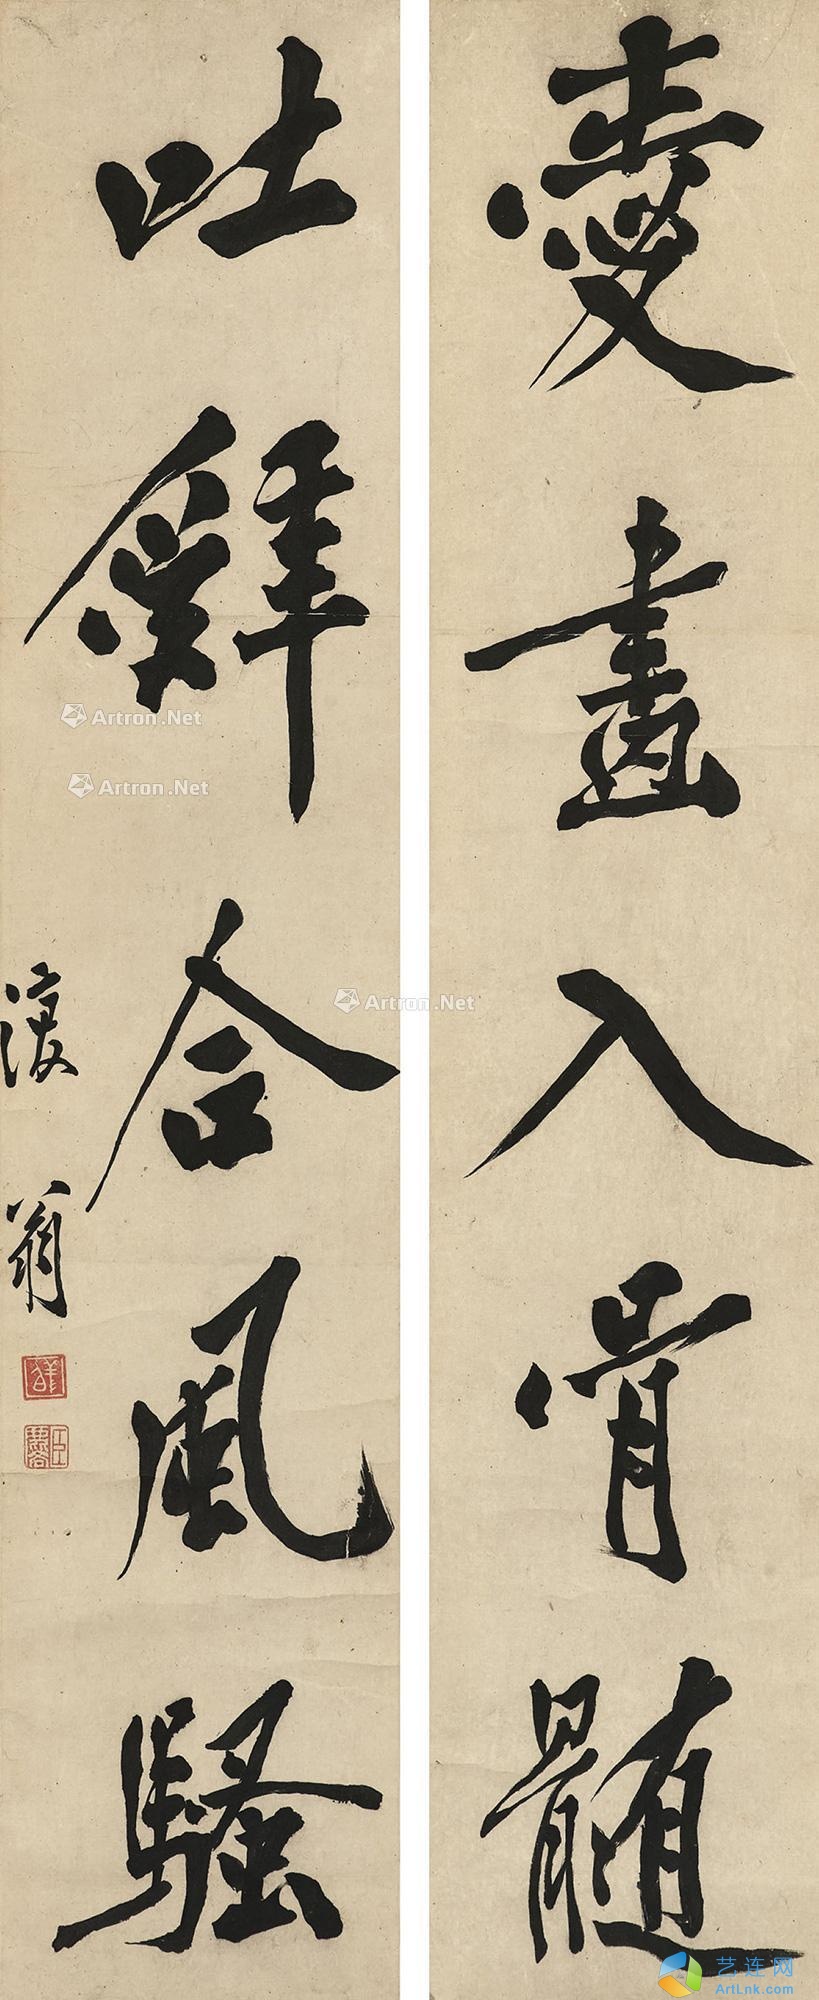 愛畫入骨髓
吐辭合風騷
翁
Artron.Net
Artron.Net
Artron.Net
艺连网
ArtLnk.com